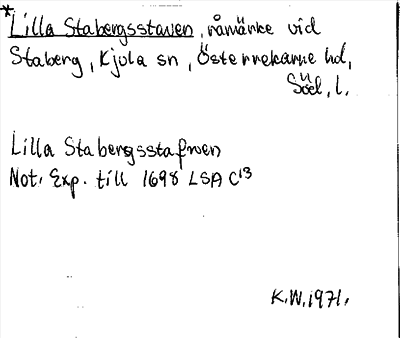 *Lilla Stabergsstaven, råmärke vid
Staberg, Kjula sn, Österrekarne hd,
Söd. l.
Lilla Stabergsstafwen
Not. Exp. till 1698 LSA C13
K.W. 1971.